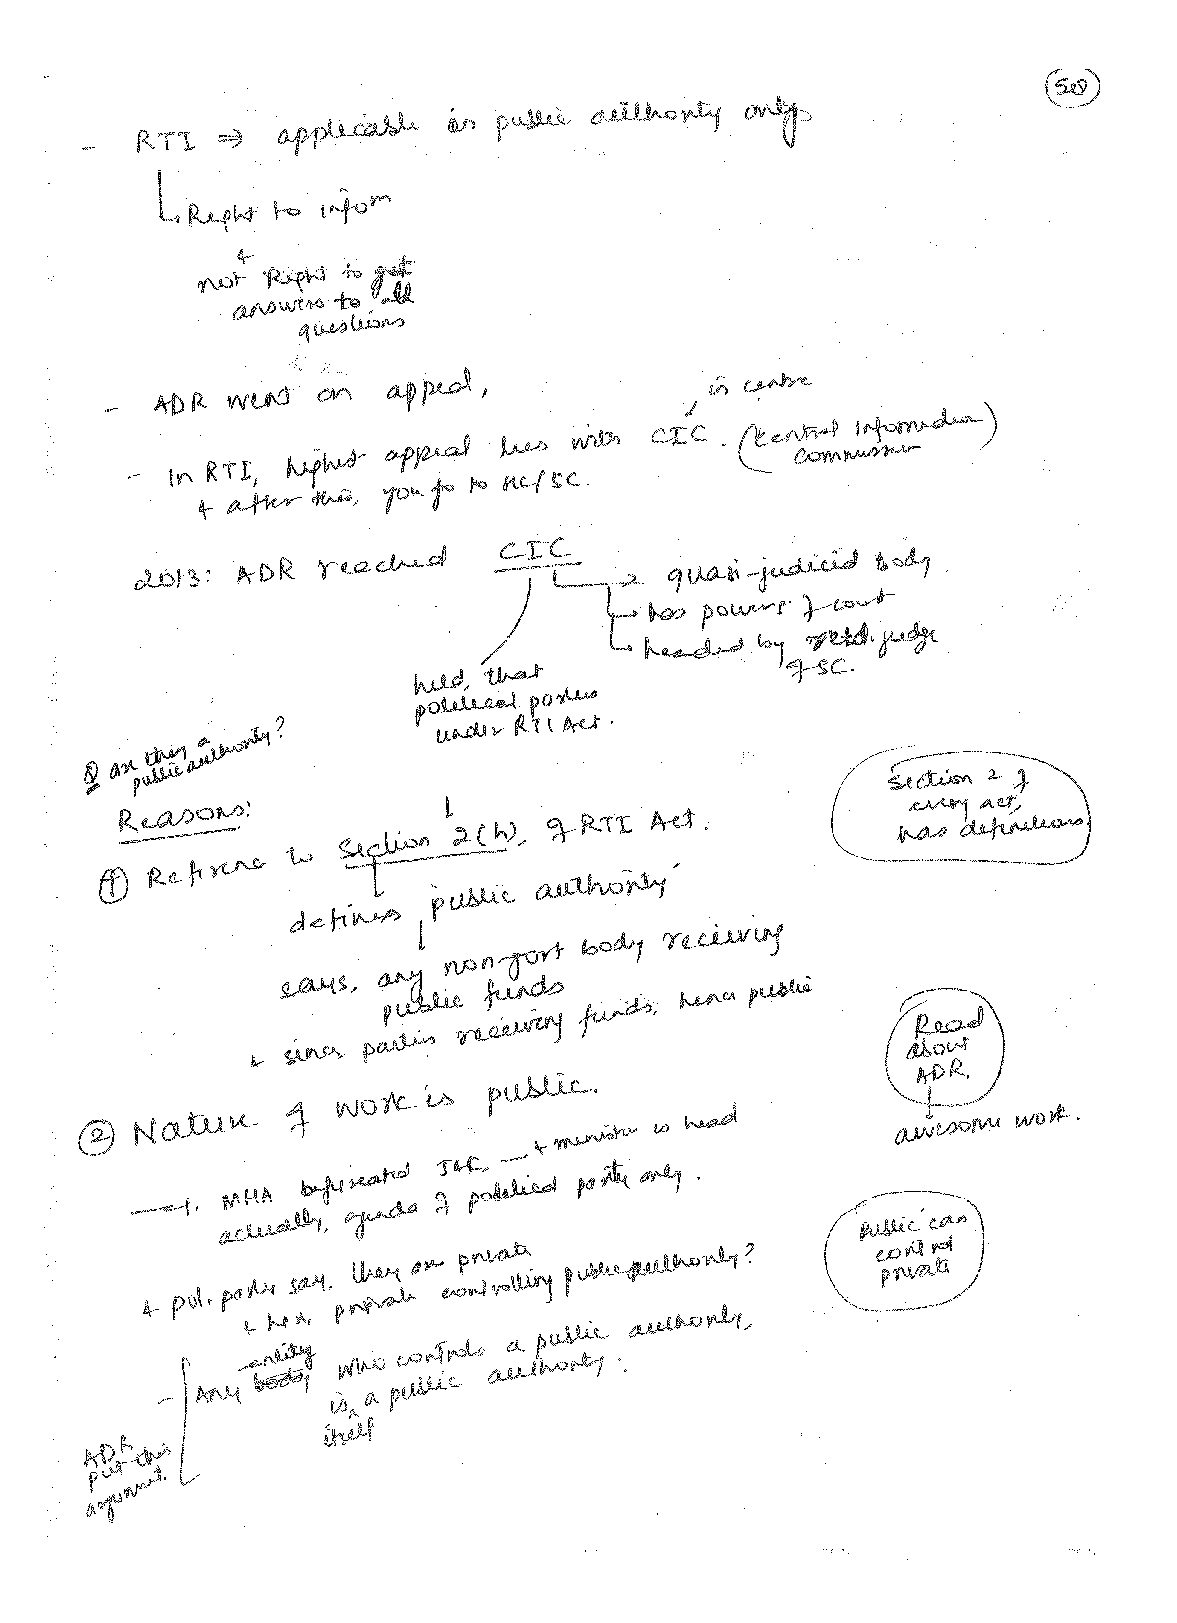 - RTI ⇒ applicable in public authority only
Right to inform
not Right to get
answers to all
questions
- ADR went on appeal,
in centre
- In RTI, highest appeal lies with CIC. (Central Information
Commission)
+ after this, you go to HC/SC.
2013: ADR reached CIC
quasi-judicial body
has powers of court
headed by retd. judge
of SC.
held, that
political parties
under RTI Act.
Q are they a
public authority?
Reasons:
Section 2 of
every act,
has definitions
① Reference to Section 2(h), of RTI Act.
defines public authority
says, any non-govt body receiving
public funds
+ since parties receiving funds, hence public
Read
about
ADR.
awesome work.
② Nature of work is public.
MHA bifurcated J&K, + minister is head
actually, agenda of political party only.
Public can
control
private
+ pol. parties say, they are private
+ here, private controlling public authority?
- Any entity who controls a public authority,
is itself a public authority.
ADR
put this
argument.